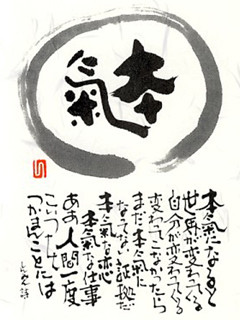 本氣
本氣になると
世界が変わってくる
自分が変わってくる
変わってこなかったら
まだ本氣に
なってない証拠だ
本氣な恋
本氣な仕事
ああ 人間一度
こいつを
つかまんことには